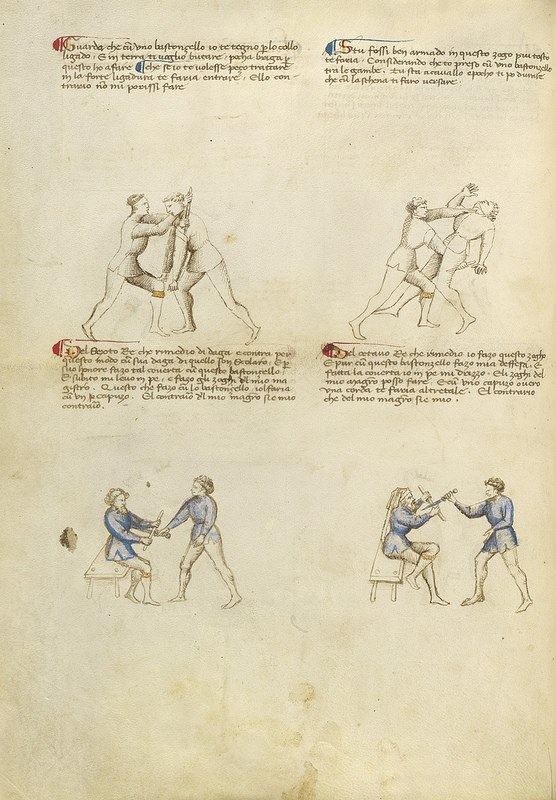 Guarda che cu uno bastonzello io te tegno p lo collo
ligado. E in terra ti voglio butare pocha briga p
questo ho a fare. Che se io te volesse pezo trattare
in la forte ligadura te faria entrare. E lo con-
trario nō mi porissi fare.
Se tu fossi ben armado in questo zogo piu tosto
te faria. Considerando che to preso cū uno bastonzello
tra le gambe. Tu sta a cavallo e pocho ti po durare
che cū la schena ti faro versare.
Del Sexto Re che rimedio di daga e contra per
questo modo cū sua daga di quello son Scolaro. E p
suo honore fazo tal coverta cū questo bastonzello.
E subito mi levo in pe. e fazo gli zoghi dl mio ma
gistro. Questo che fazo cū lo bastonzello io lo faria
cū un capuzo. El contrario dl mio magistro sie mio
contrario.
Del octavo Re che rimedio io fazo questo zogho
E pur cū questo bastonzello fazo mia deffesa. E
fatta la coverta io in pe mi drizzo. E li zoghi del
mio magistro posso fare. E cū uno capuzo overo
una corda te faria altretale. El contrario
che del mio magistro sie mio.